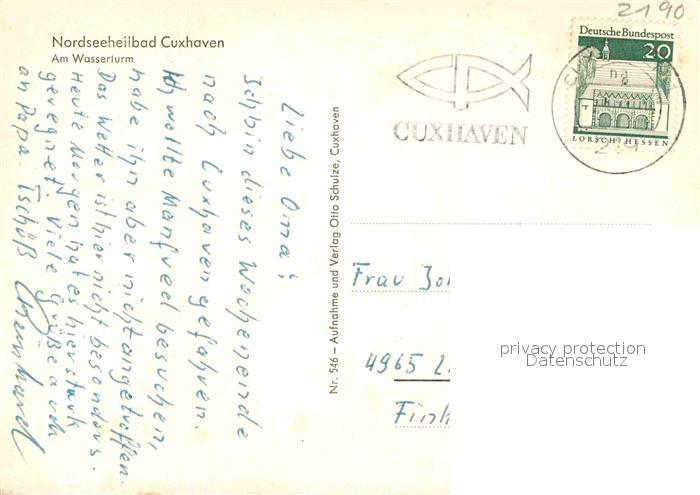 2190
Nordseeheilbad Cuxhaven
Am Wasserturm
Deutsche Bundespost
20
LORSCH/HESSEN
CUXHAVEN
219
Liebe Oma!
Ich bin dieses Wochenende
nach Cuxhaven gefahren.
Ich wollte Manfred besuchen,
habe ihn aber nicht angetroffen.
Das Wetter ist hier nicht besonders.
Heute Morgen hat es hier stark
geregnet. Viele Grüße auch
an Papa. Tschüß Bernhard
Nr. 546 – Aufnahme und Verlag Otto Schulze, Cuxhaven
Frau Jo
4965 L
Fin
privacy protection
Datenschutz